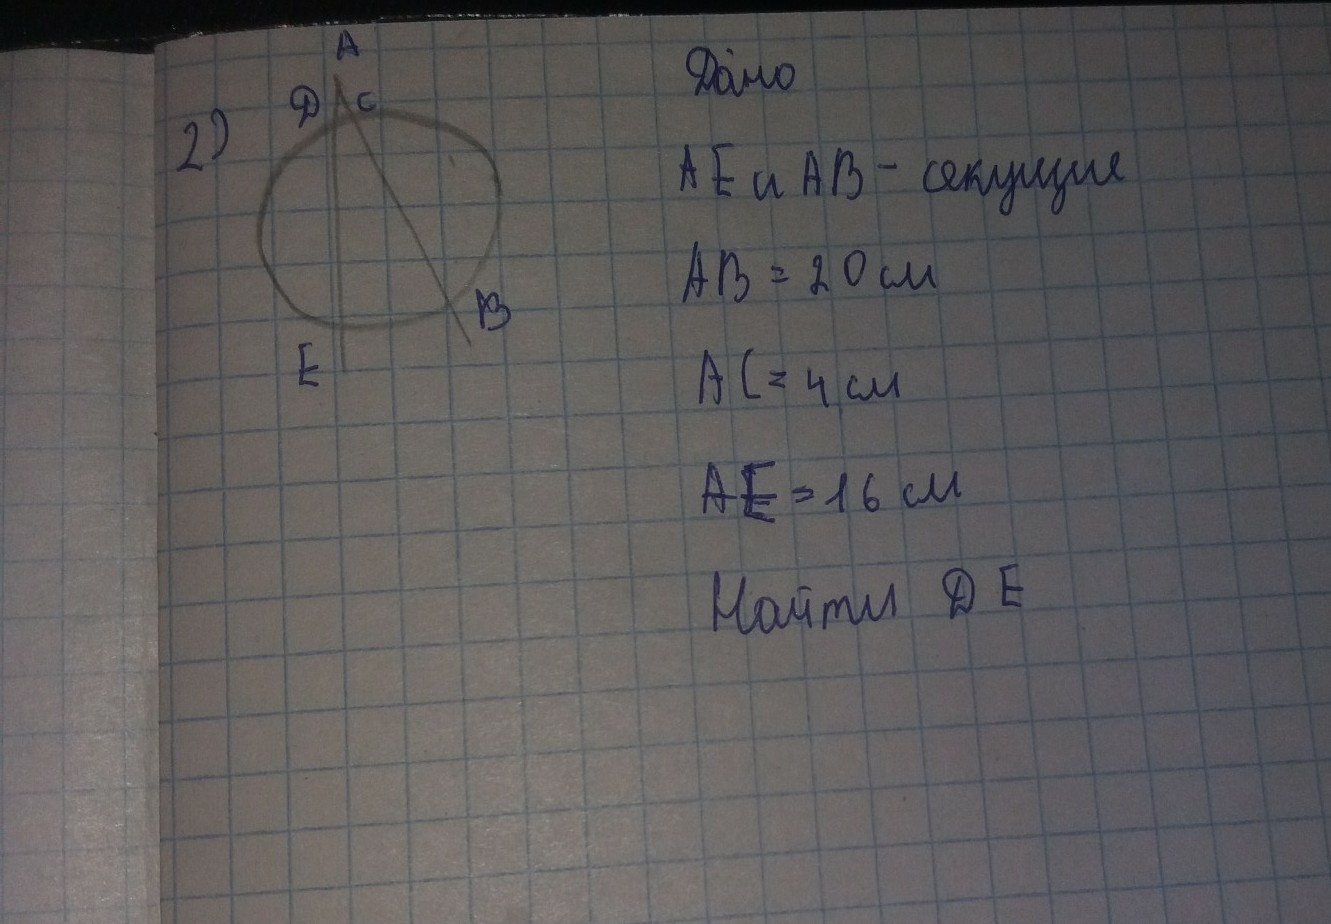 2)
A
D C
B
E
Дано
AE и AB - секущие
AB = 20 см
AC = 4 см
AE = 16 см
Найти DE